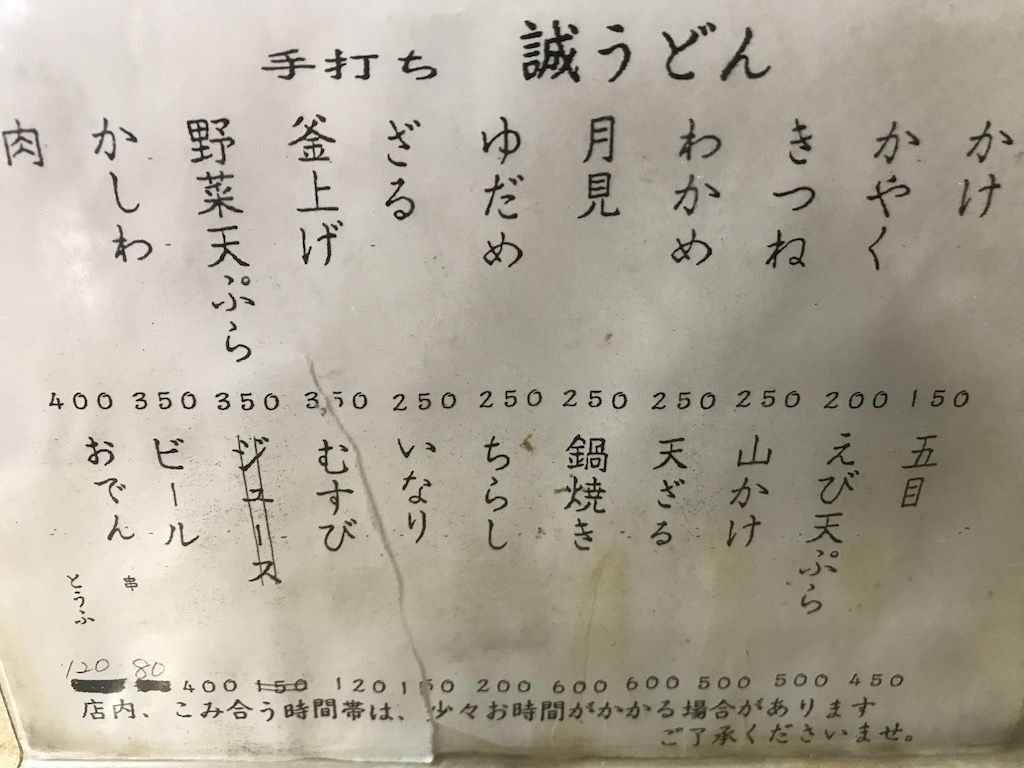 手打ち 誠うどん
かけ 150
かやく 200
きつね 250
わかめ 250
月見 250
ゆだめ 250
ざる 250
釜上げ 350
野菜天ぷら 350
かしわ 350
肉 400
五目 450
えび天ぷら 500
山かけ 500
天ざる 600
鍋焼き 600
ちらし 200
いなり 150
むすび 120
ジュース 150
ビール 400
おでん
串 80
とうふ 120
店内、こみ合う時間帯は、少々お時間がかかる場合があります
ご了承くださいませ。